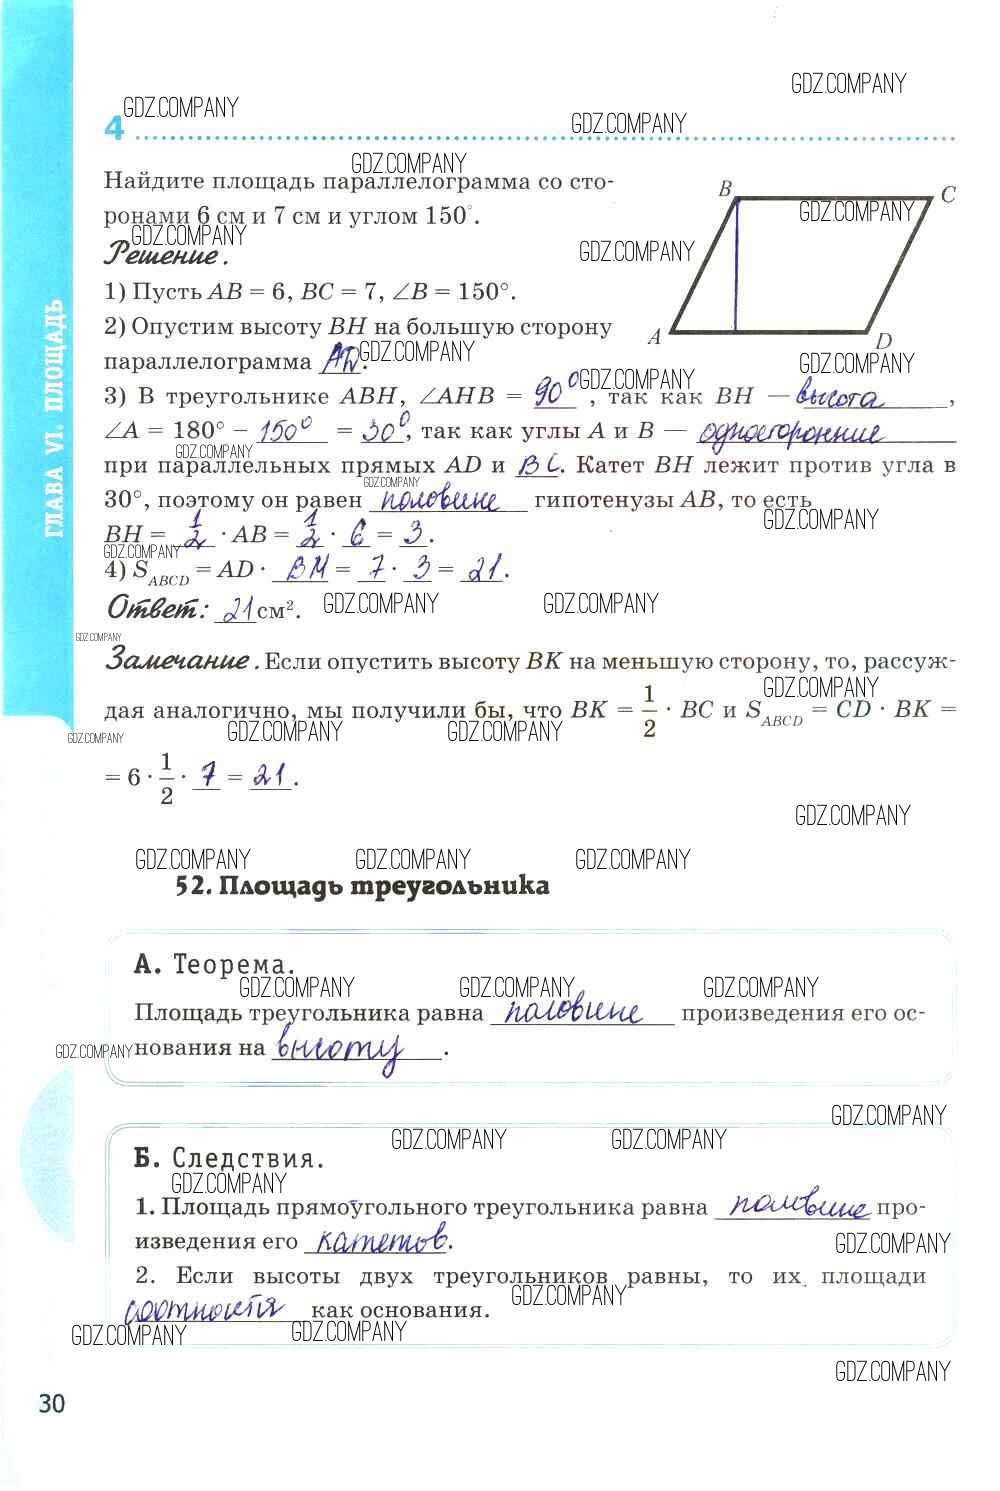 GDZ.COMPANY
GDZ.COMPANY
4
GDZ.COMPANY
GDZ.COMPANY
Найдите площадь параллелограмма со сто-
ронами 6 см и 7 см и углом 150°.
B
C
GDZ.COMPANY
GDZ.COMPANY
GDZ.COMPANY
Решение.
1) Пусть AB = 6, BC = 7, ∠B = 150°.
2) Опустим высоту BH на большую сторону
A
D
параллелограмма AD.
GDZ.COMPANY
GDZ.COMPANY
GDZ.COMPANY
3) В треугольнике ABH, ∠AHB = 90°, так как BH — высота,
∠A = 180° – 150° = 30°, так как углы A и B — односторонние
GDZ.COMPANY
при параллельных прямых AD и BC. Катет BH лежит против угла в
GDZ.COMPANY
30°, поэтому он равен половине гипотенузы AB, то есть
GDZ.COMPANY
BH = 1/2 · AB = 1/2 · 6 = 3.
GDZ.COMPANY
4) S ABCD = AD · BH = 7 · 3 = 21.
Ответ: 21 см².
GDZ.COMPANY
GDZ.COMPANY
GDZ.COMPANY
Замечание. Если опустить высоту BK на меньшую сторону, то, рассуж-
GDZ.COMPANY
дая аналогично, мы получили бы, что BK = 1/2 · BC и S ABCD = CD · BK =
GDZ.COMPANY
GDZ.COMPANY
GDZ.COMPANY
= 6 · 1/2 · 7 = 21.
GDZ.COMPANY
GDZ.COMPANY
GDZ.COMPANY
GDZ.COMPANY
52. Площадь треугольника
А. Теорема.
GDZ.COMPANY
GDZ.COMPANY
GDZ.COMPANY
Площадь треугольника равна половине произведения его ос-
нования на высоту.
GDZ.COMPANY
GDZ.COMPANY
GDZ.COMPANY
GDZ.COMPANY
Б. Следствия.
GDZ.COMPANY
1. Площадь прямоугольного треугольника равна половине про-
изведения его катетов.
GDZ.COMPANY
2. Если высоты двух треугольников равны, то их площади
GDZ.COMPANY
соотносятся как основания.
GDZ.COMPANY
GDZ.COMPANY
GDZ.COMPANY
30
ГЛАВА VI. ПЛОЩАДЬ